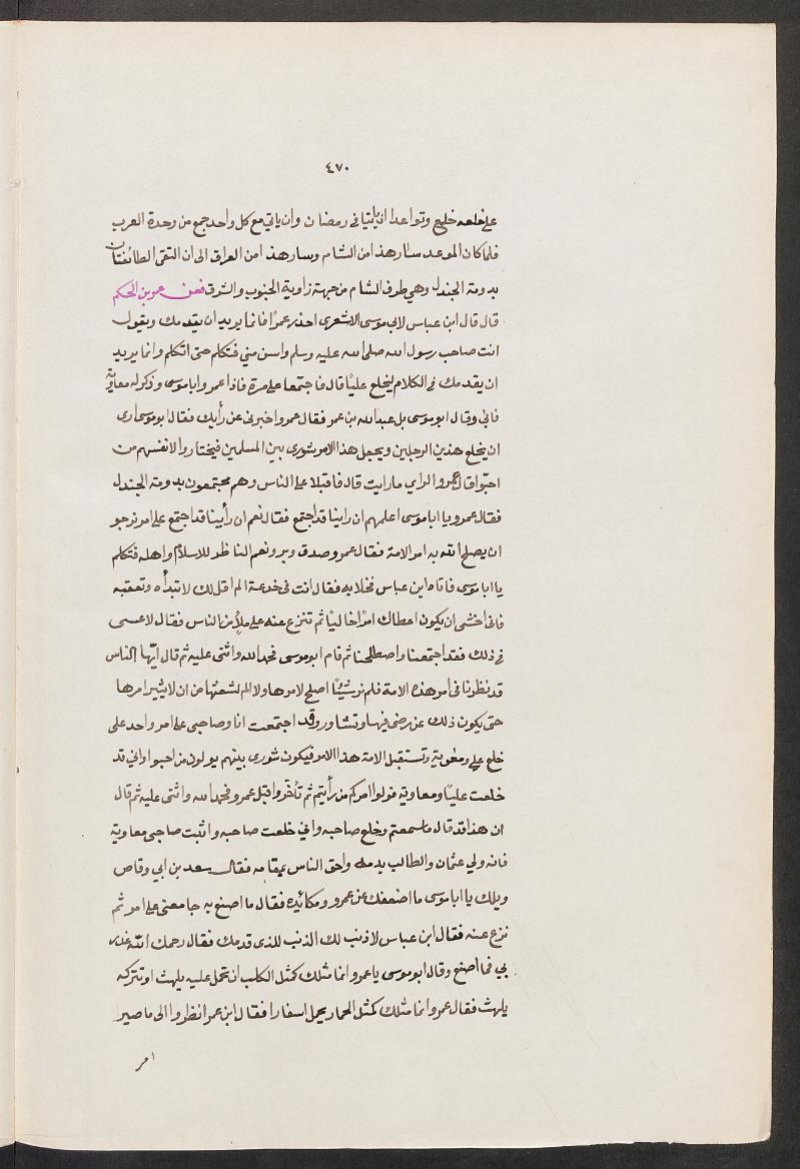 ٤٧٠
على خلعه خليع وتواعدا ان ياتيا فى رمضان وان ياتي مع كل واحد جمع من وحدة العرب
فلما كان الموعد سار هذا من الشام وسار هذا من العراق الى ان التقى الطائفتان
بدومة الجندل وهي طرف الشام من جهة زاوية الجنوب والشرق فعن عمر بن الحكم
قال قال ابن عباس لابي موسى الاشعرى احذر عمرًا فانما يريد ان يقدمك ويقول
انت صاحب رسول الله صلى الله عليه وسلم واسن مني فتكلم حتى اتكلم وانما يريد
ان يقدمك فى الكلام ليخلع عليًا قال فاجتمعا على مرة فاذا عمرو ابا موسى وذكر له معاوية
فابي وقال ابو موسى بل عبد الله بن عمر فقال عمرو اخبرنى عن رأيك فقال ابو موسى ارى
ان يخلع هذين الرجلين ويجعل هذا الامر شورى بين المسلمين فيختاروا لانفسهم من
احبوا قال عمرو الراي ما رايت قال فاقبلا على الناس وهم مجتمعون بدومة الجندل
فقال عمرو يا ابا موسى اعلمهم ان راينا قد اجتمع فقال نعم ان رأينا قد اجتمع على امر نرجو
ان يصلح الله به امر الامة فقال عمرو صدق وبر ونعم الناظر للاسلام واهله فتكلم
يا ابا موسى فاتاه ابن عباس فخلا به فقال انت فى خدعة الم اقل لك لا تبدأه وتعقبه
فانى اخشى ان يكون اعطاك امرًا خاليًا ثم تنزع عنه على ملأ من الناس فقال لا عسى
فى ذلك فقد اجتمعنا واصطلحنا ثم قام ابو موسى فحمد الله واثنى عليه ثم قال ايّها الناس
قد نظرنا فى امر هذه الامة فلم نر شيئًا اصلح لامرها ولا الم لشعثها من ان لا يثير امرها
حتى يكون ذلك عن رضى فيها وتشاور وقد اجتمعت انا وصاحبى على امر واحد على
خلع على ومعوية وتستقبل الامة هذا الامر فيكون شورى بينهم يولون من احبوا واني قد
خلعت عليًا ومعاوية فولوا امركم من رأيتم ثم تأخر واقبل عمرو فحمد الله واثنى عليه ثم قال
ان هذا قد قال ما سمعتم وخلع صاحبه واني خلعت صاحبه واثبت صاحبى معاوية
فانه ولي عثمان والطالب بدمه واحق الناس بمقامه فقال سعد بن ابي وقاص
ويلك يا ابا موسى ما اضعفك عن عمرو ومكائيده فقال ما اصنع به جامعنى على امر ثم
نزع عنه فقال ابن عباس لا ذنب لك الذنب للذى قدمك فقال رحمك الله غدر
بي فما اصنع وقال ابو موسى يا عمرو انما مثلك كمثل الكلب ان تحمل عليه يلهث او تتركه
يلهث فقال عمرو انما مثلك كمثل الحمار يحمل اسفارا فقال ابن عمر انظروا الى ما صير
امر